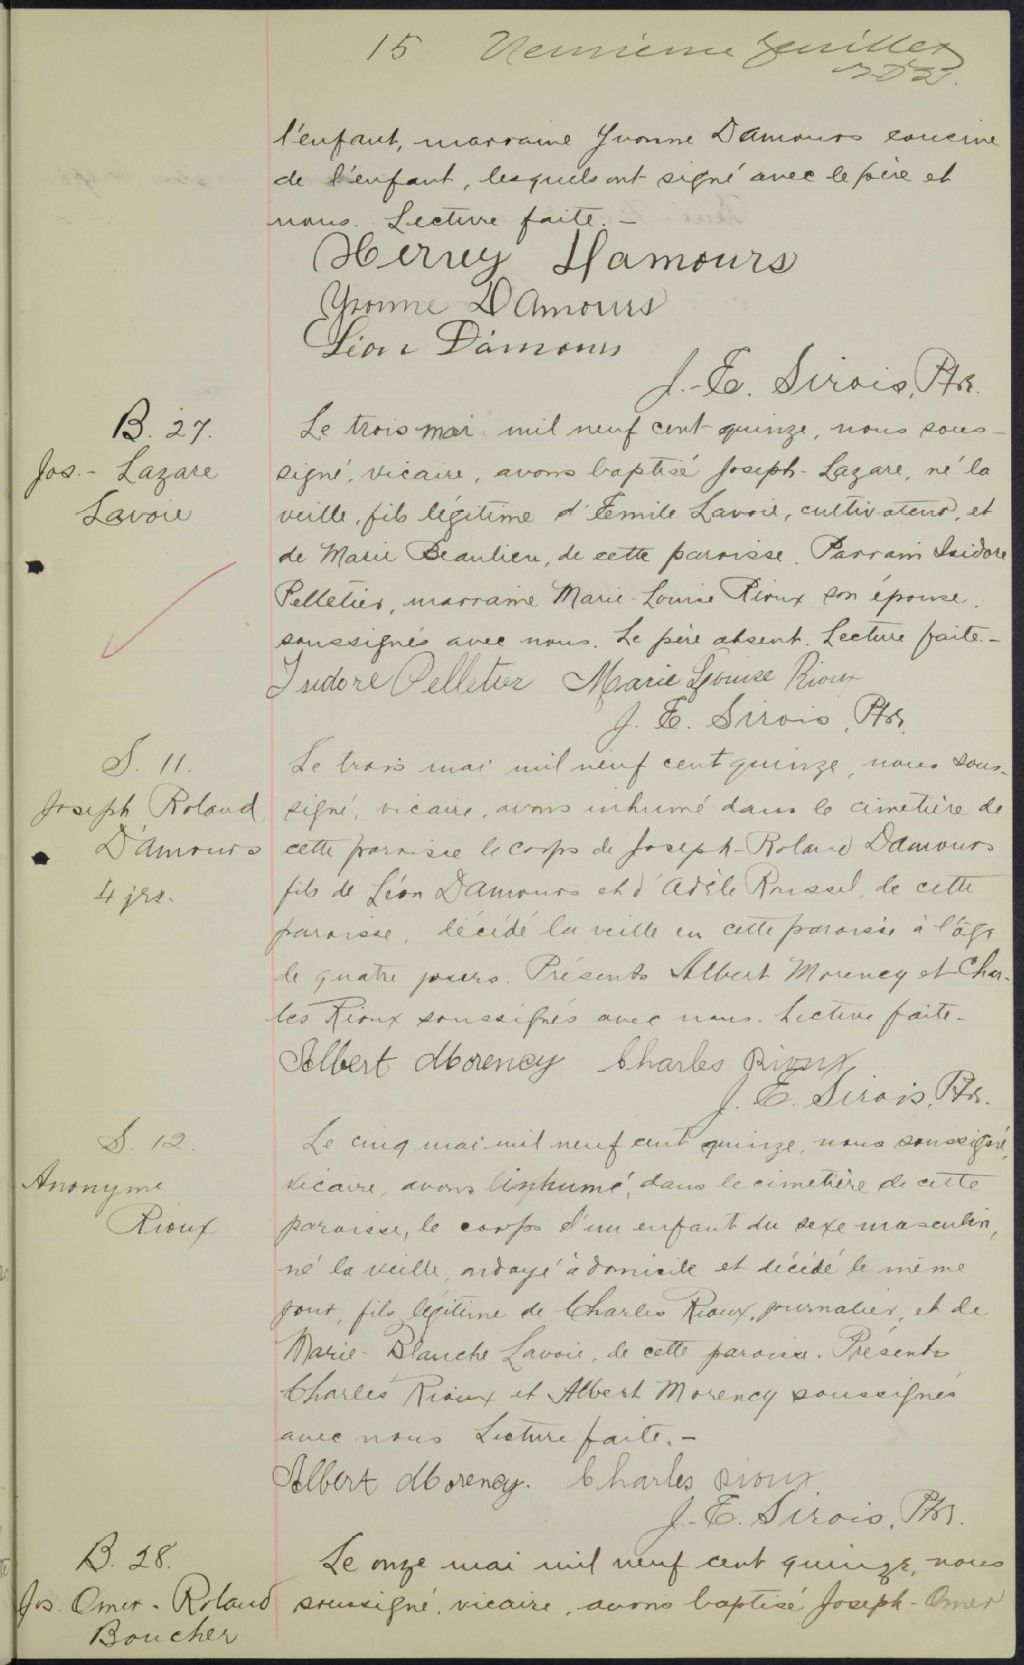 15 Neuvième feuillet
l'enfant, marraine Yvonne Damours cousine
de l'enfant, lesquels ont signé avec le père et
nous. Lecture faite. –
Hervey Damours
Yvonne D'Amours
Léon D'amours
J.-E. Sirois, Ptr.
B. 27.
Jos.- Lazare
Lavoie
Le trois mai mil neuf cent quinze, nous sous-
signé, vicaire, avons baptisé Joseph-Lazare, né la
veille, fils légitime d'Emile Lavoie, cultivateur, et
de Marie Beaulieu, de cette paroisse. Parrain Isidore
Pelletier, marraine Marie-Louise Rioux son épouse.
soussignés avec nous. Le père absent. Lecture faite.-
Isidore Pelletier Marie Louise Rioux
J. E. Sirois, Ptr.
S. 11.
Joseph Roland
D'amours
4 jrs.
Le trois mai mil neuf cent quinze, nous sous-
signé, vicaire, avons inhumé dans le cimetière de
cette paroisse le corps de Joseph-Roland Damours
fils de Léon Damours et d'Adèle Roussel, de cette
paroisse, décédé la veille en cette paroisse à l'âge
de quatre jours. Présents Albert Morency et Char-
les Rioux soussignés avec nous. Lecture faite-
Albert Morency Charles Rioux
J. E. Sirois, Ptr.
S. 12.
Anonyme
Rioux
Le cinq mai mil neuf cent quinze, nous soussigné,
vicaire, avons inhumé, dans le cimetière de cette
paroisse, le corps d'un enfant du sexe masculin,
né la veille, ondoyé à domicile et décédé le même
jour, fils légitime de Charles Rioux, journalier, et de
Marie-Blanche Lavoie, de cette paroisse. Présents
Charles Rioux et Albert Morency soussignés
avec nous Lecture faite.-
Albert Morency. Charles Rioux
J.-E. Sirois, Ptr.
B. 28.
Jos. Omer-Roland
Boucher
Le onze mai mil neuf cent quinze, nous
soussigné, vicaire, avons baptisé Joseph-Omer